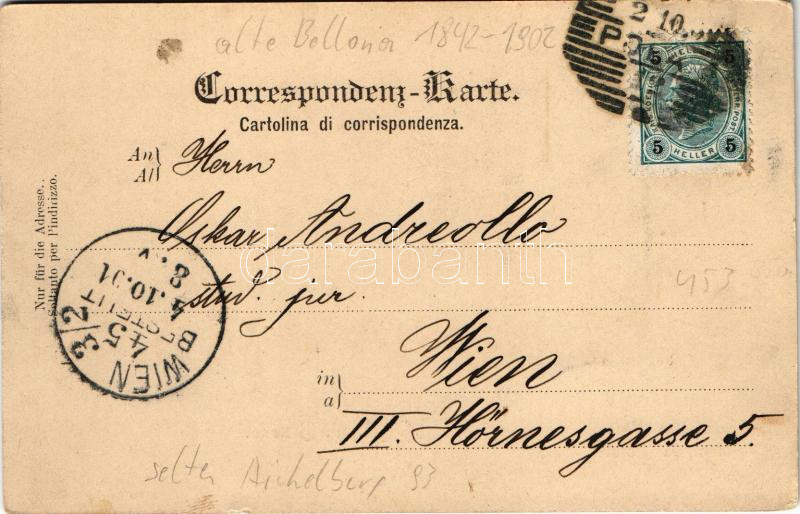 alte Bellona 1842-1902
2 10
P
5 5
5 HELLER 5
Correspondenz-Karte.
Cartolina di corrispondenza.
An
All
Herrn
Oskar Andreollo
stud. jur.
in
a
Wien
III. Hörnesgasse 5.
Nur für die Adresse.
Soltanto per l'indirizzo.
WIEN 3/2
45
BESTELLT
4.10.01
8.V
darabanth
453
selten Aichelburg 93